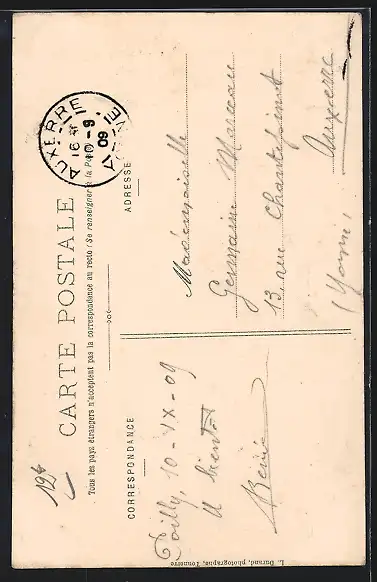 CARTE POSTALE
Tous les pays étrangers n'acceptent pas la correspondance au recto (Se renseigner à la Poste)
CORRESPONDANCE
ADRESSE
AUXERRE
YONNE
10 - 9
09
Poilly, 10-IX-09
A bientôt
Mademoiselle
Germaine Marceau
13, rue Chantepinot
Auxerre
(Yonne)
L. Durand, photographe, Tonnerre